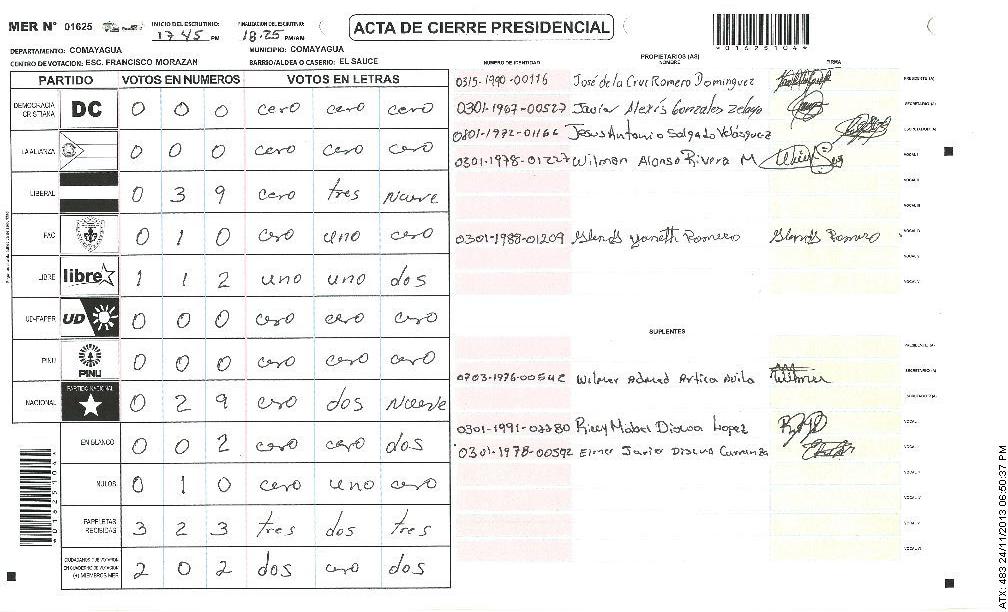 MER N° 01625 INICIO DEL ESCRUTINIO: 17 45 PM FINALIZACION DEL ESCRUTINIO: 18:25 PM/AM ACTA DE CIERRE PRESIDENCIAL *01625104*
DEPARTAMENTO: COMAYAGUA MUNICIPIO: COMAYAGUA
CENTRO DE VOTACION: ESC. FRANCISCO MORAZAN BARRIO/ALDEA O CASERIO: EL SAUCE
PARTIDO VOTOS EN NUMEROS VOTOS EN LETRAS
DEMOCRACIA CRISTIANA DC 0 0 0 cero cero cero
LA ALIANZA 0 0 0 cero cero cero
LIBERAL 0 3 9 cero tres Nueve
PAC 0 1 0 cero uno cero
LIBRE libre 1 1 2 uno uno dos
UD-FAPER UD 0 0 0 cero cero cero
PINU PINU 0 0 0 cero cero cero
NACIONAL PARTIDO NACIONAL 0 2 9 cero dos Nueve
EN BLANCO 0 0 2 cero cero dos
NULOS 0 1 0 cero uno cero
PAPELETAS RECIBIDAS 3 2 3 tres dos tres
CIUDADANOS QUE VOTARON EN CUADERNO DE VOTACION (+) MIEMBROS MER 2 0 2 dos cero dos
*01625104*
PROPIETARIOS (AS)
NUMERO DE IDENTIDAD NOMBRE FIRMA
0315-1990-00116 José de la Cruz Romero Dominguez PRESIDENTE (A)
0301-1967-00527 Javier Alexis Gonzales Zelaya SECRETARIO (A)
0801-1972-01166 Jesus Antonio Salgado Velásquez ESCRUTADOR (A)
0301-1978-01227 Wilman Alonso Rivera M VOCAL I
VOCAL II
VOCAL III
0301-1988-01209 Glenda Yaneth Romero Glenda Romero VOCAL IV
VOCAL V
VOCAL VI
SUPLENTES
PRESIDENTE (A)
0703-1976-00542 Wilmer Admed Artica Avila Wilmer SECRETARIO (A)
ESCRUTADOR (A)
0301-1991-02280 Riccy Mabel Discua Lopez VOCAL I
0301-1978-00592 Elmer Javier Discua VOCAL II
VOCAL III
VOCAL IV
VOCAL V
VOCAL VI
ATX: 483 24/11/2013 06:50:37 PM